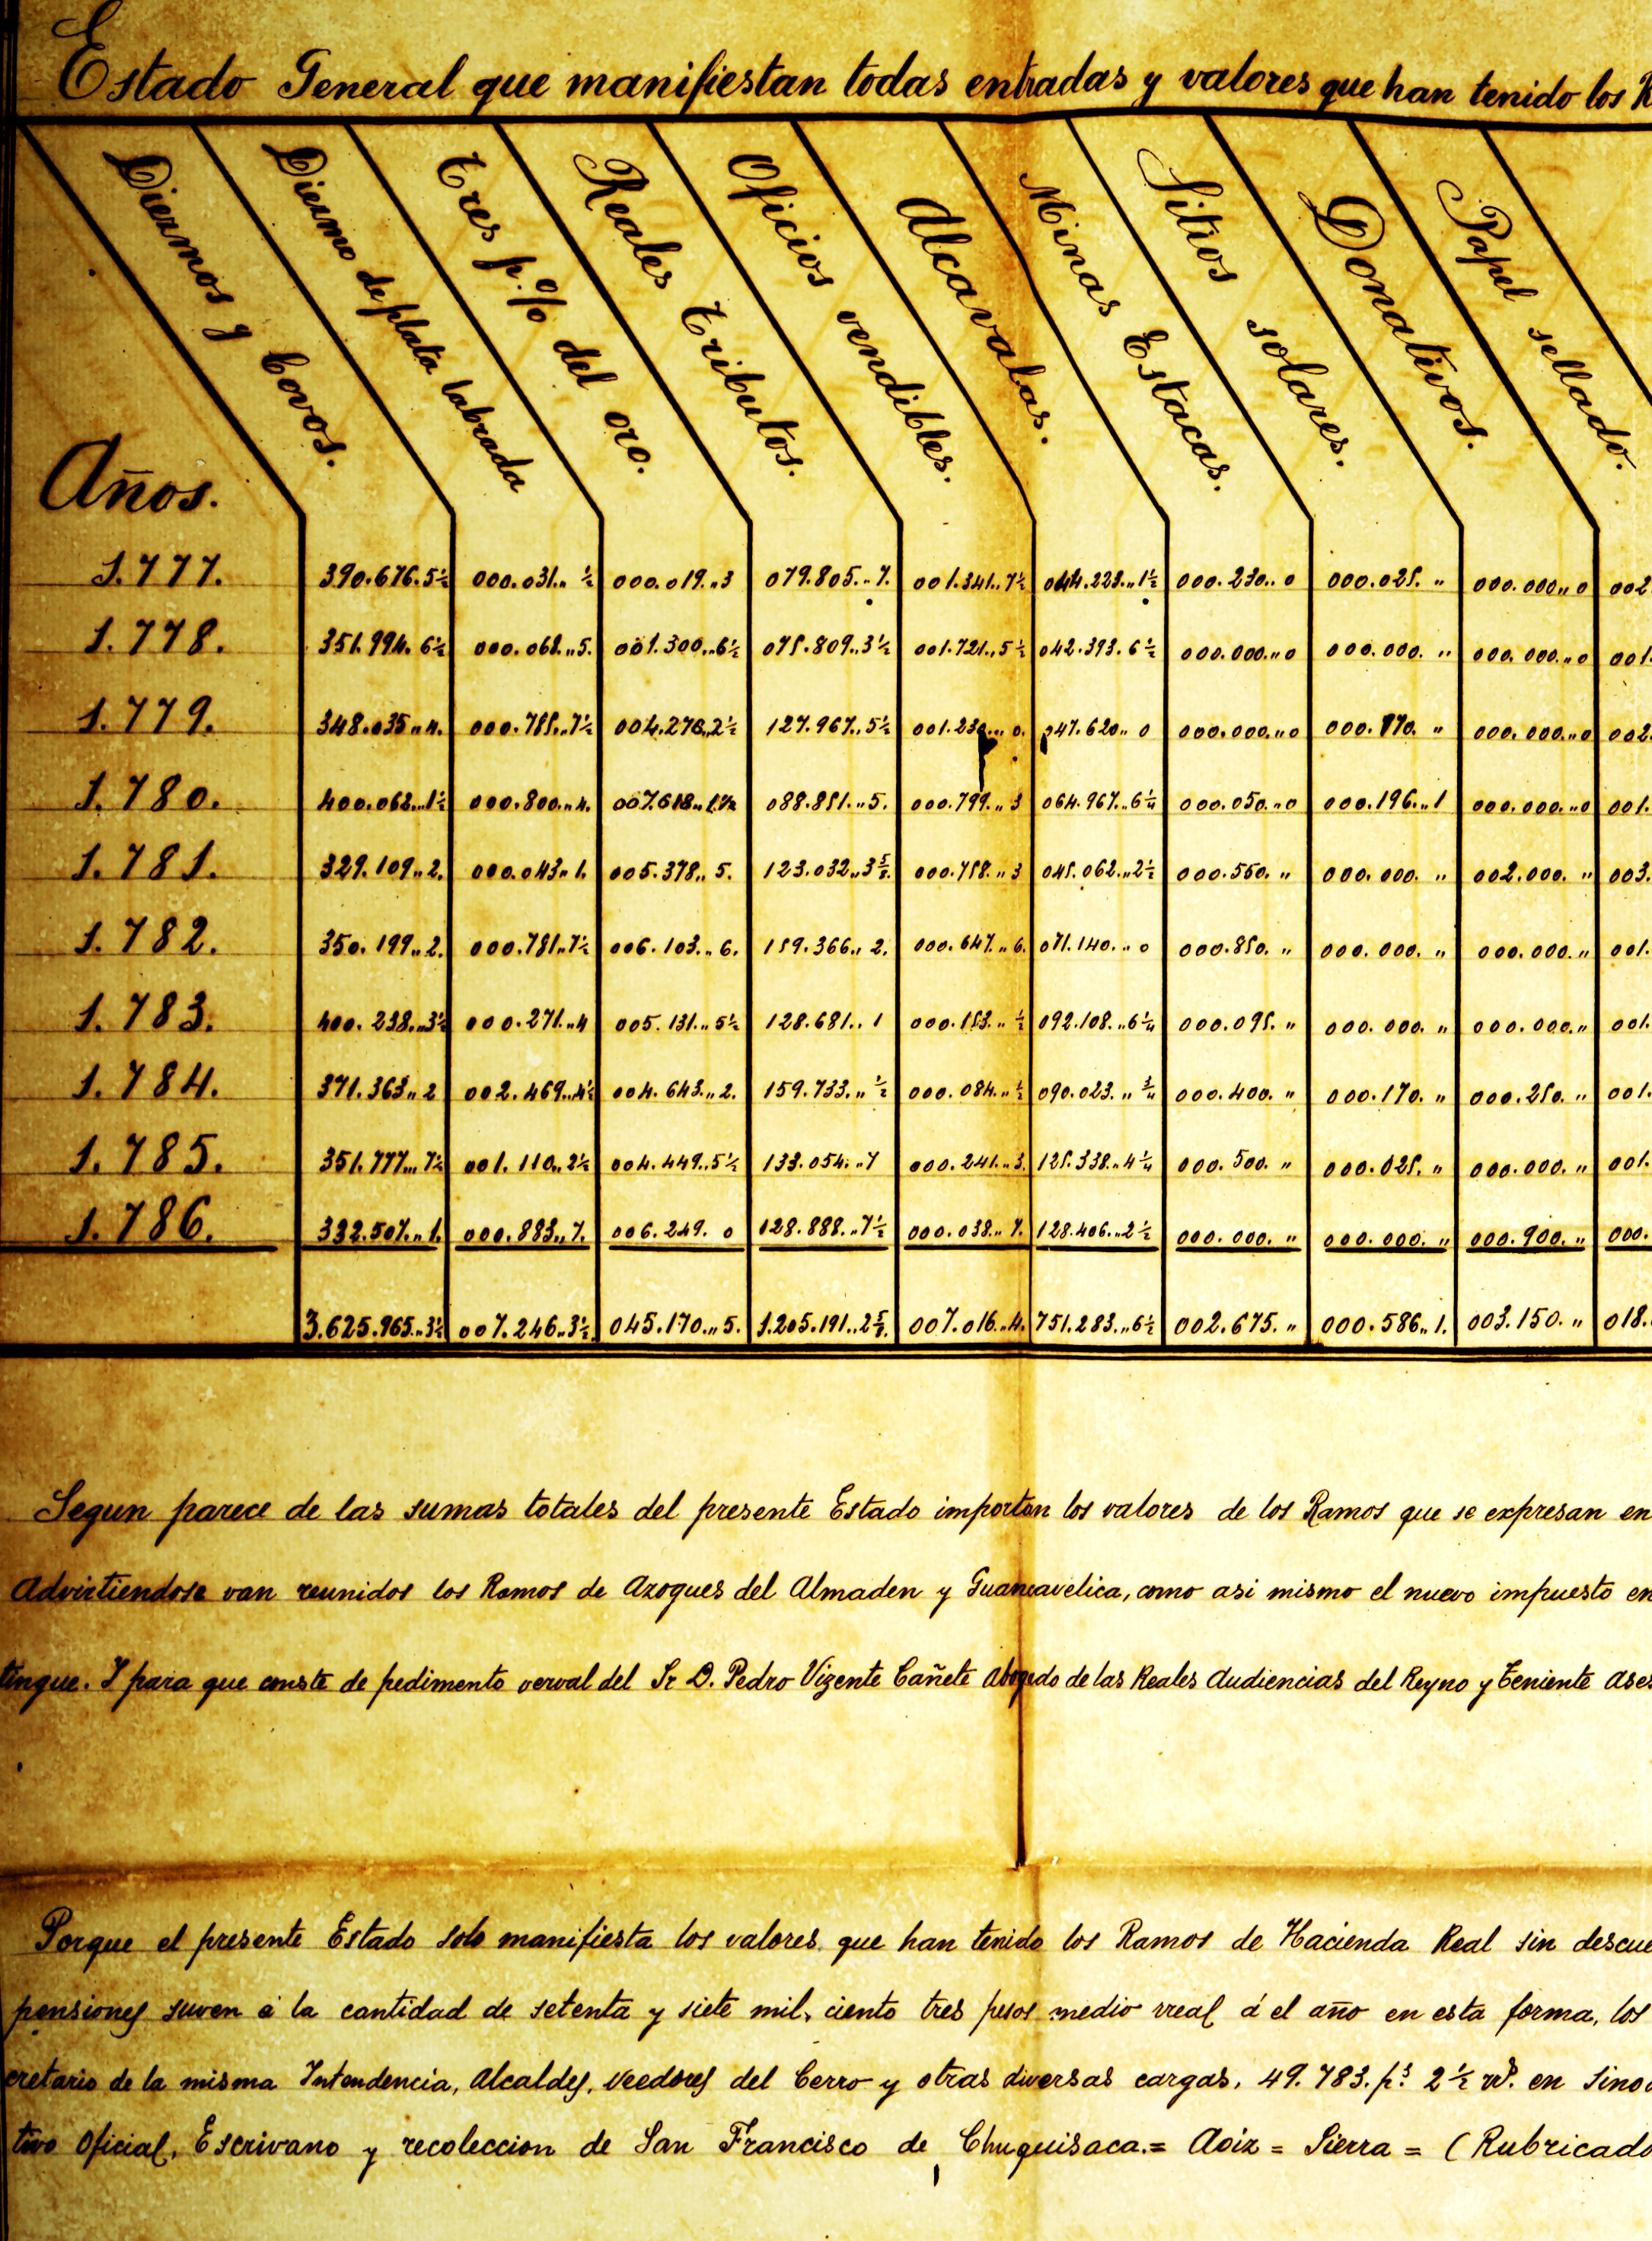 Estado General que manifiestan todas entradas y valores que han tenido los R
Años. Diezmos y Covos. Diezmo de plata labrada Tres p.% del oro. Reales Tributos. Oficios vendibles. Alcavalas. Minas Estacas. Sitios solares. Donativos. Papel sellado.
1.777. 390.676.5½ 000.031.. ½ 000.019..3 079.805..7. 001.341..7½ 044.223..1½ 000.230..0 000.025. " 000.000..0 002
1.778. 351.994. 6½ 000.068..5. 001.300..6½ 075.809..3½ 001.721..5½ 042.393.6½ 000.000..0 000.000. " 000.000..0 001.
1.779. 348.035..4. 000.785..7½ 004.276..2½ 127.967..5½ 001.230... 0. 047.620.. 0 000.000..0 000.170. " 000.000..0 002.
1.780. 400.062..1½ 000.800..4. 007.618.. 088.851..5. 000.799..3 064.967..6¼ 000.050..0 000.196..1 000.000..0 001.
1.781. 329.109..2. 000.043..1. 005.378.. 5. 123.032..3⅝. 000.758..3 045.062..2½ 000.550. " 000.000. " 002.000. " 003.
1.782. 350.199..2. 000.781..7½ 006.103.. 6. 159.366.. 2. 000.647..6. 071.140. .. 0 000.850. " 000.000. " 000.000. " 001.
1.783. 400.238..3½ 000.271..4 005.131..5½ 128.681.. 1 000.153.. ½ 092.108..6¼ 000.095. " 000.000. " 000.000. " 001.
1.784. 371.363..2 002.469..4½ 004.643..2. 159.733.. ½ 000.084.. ½ 090.023.. ¾ 000.400. " 000.170. " 000.250. " 001.
1.785. 351.777.. 7½ 001.110..2½ 004.449..5½ 133.054..7 000.241..3. 125.338..4¼ 000.500. " 000.025. " 000.000. " 001.
1.786. 332.507..1. 000.883..7. 006.249. 0 128.888..7½ 000.038..7. 128.406..2½ 000.000. " 000.000. " 000.900. " 000.
3.625.965..3½ 007.246..3½. 045.170..5. 1.205.191..2⅝. 007.016..4. 751.283..6½ 002.675. " 000.586..1. 003.150. " 018.
Segun parece de las sumas totales del presente Estado importan los valores de los Ramos que se expresan en
Advirtiendose van reunidos los Ramos de Azogues del Almaden y Guancavelica, como asi mismo el nuevo impuesto en
tingue. Y para que conste de pedimento verval del Sr D. Pedro Vizente Cañete Abogado de las Reales Audiencias del Reyno y Teniente Ases
Porque el presente Estado solo manifiesta los valores que han tenido los Ramos de Hacienda Real sin descue
pensiones suven á la cantidad de setenta y siete mil, ciento tres pesos medio rreal á el año en esta forma, los
cretario de la misma Intendencia, Alcaldes, Veedores del Cerro y otras diversas cargas, 49.783. p.s 2½ rr.s en Sino
tivo Oficial, Escrivano y recoleccion de San Francisco de Chuquisaca.= Aoiz = Sierra = (Rubricado